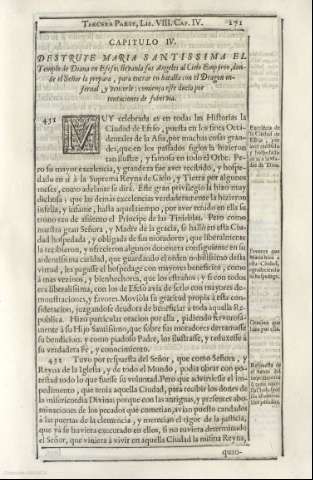 TERCERA PARTE, LIB. VIII. CAP. IV. 271
CAPITULO IV.
DESTRUYE MARIA SANTISSIMA EL
Templo de Diana en Efeso, llevanla sus Angeles al Cielo Empireo, don-
de el Señor la prepara, para entrar en batalla con el Dragon in-
fernal, y vencerle: comiença este duelo por
tentaciones de sobervia.
451 MUY celebrada es en todas las Historias la
Ciudad de Efeso, puesta en los fines Occi-
dentales de la Asia, por muchas cosas gran-
des, que en los passados siglos la hizieron
tan ilustre, y famosa en todo el Orbe. Pe-
ro su mayor excelencia, y grandeza fue aver recibido, y hospe-
dado en sì à la Suprema Reyna de Cielo, y Tierra por algunos
meses, como adelante se dirà. Este gran privilegio la hizo muy
dichosa; que las demàs excelencias verdaderamente la hizieron
infeliz, y infame, hasta aquel tiempo, por aver tenido en ella su
trono tan de assiento el Principe de las Tinieblas. Pero como
nuestra gran Señora, y Madre de la gracia, se hallò en esta Ciu-
dad hospedada, y obligada de sus moradores, que liberalmente
la recibieron, y ofrecieron algunos dones; era consiguiente en su
ardentissima caridad, que guardando el orden nobilissimo desta
virtud, les pagasse el hospedage con mayores beneficios, como
à mas vezinos, y bienhechores, que los estraños; y si con todos
era liberalissima, con los de Efeso avia de serlo con mayores de-
monstraciones, y favores. Moviòla su gratitud propia à esta con-
sideracion, juzgandose deudora de beneficiar à toda aquella Re-
publica. Hizo particular oracion por ella, pidiendo fervorosa-
mente à su Hijo Santissimo, que sobre sus moradores derramasse
su bendicion, y como piadoso Padre, los ilustrasse, y reduxesse à
su verdadera Fè, y conocimiento.
452 Tuvo por respuesta del Señor, que como Señora, y
Reyna de la Iglesia, y de todo el Mundo, podia obrar con po-
testad todo lo que fuesse su voluntad. Pero que advirtiesse el im-
pedimento, que tenia aquella Ciudad, para recibir los dones de
la misericordia Divina; porque con las antiguas, y presentes abo-
minaciones de los pecados que cometian, avian puesto candados
à las puertas de la clemencia, y merecian el rigor de la justicia,
que yà se huviera executado en ellos, si no tuviera determinado
el Señor, que viniera à vivir en aquella Ciudad la misma Reyna,
quan-